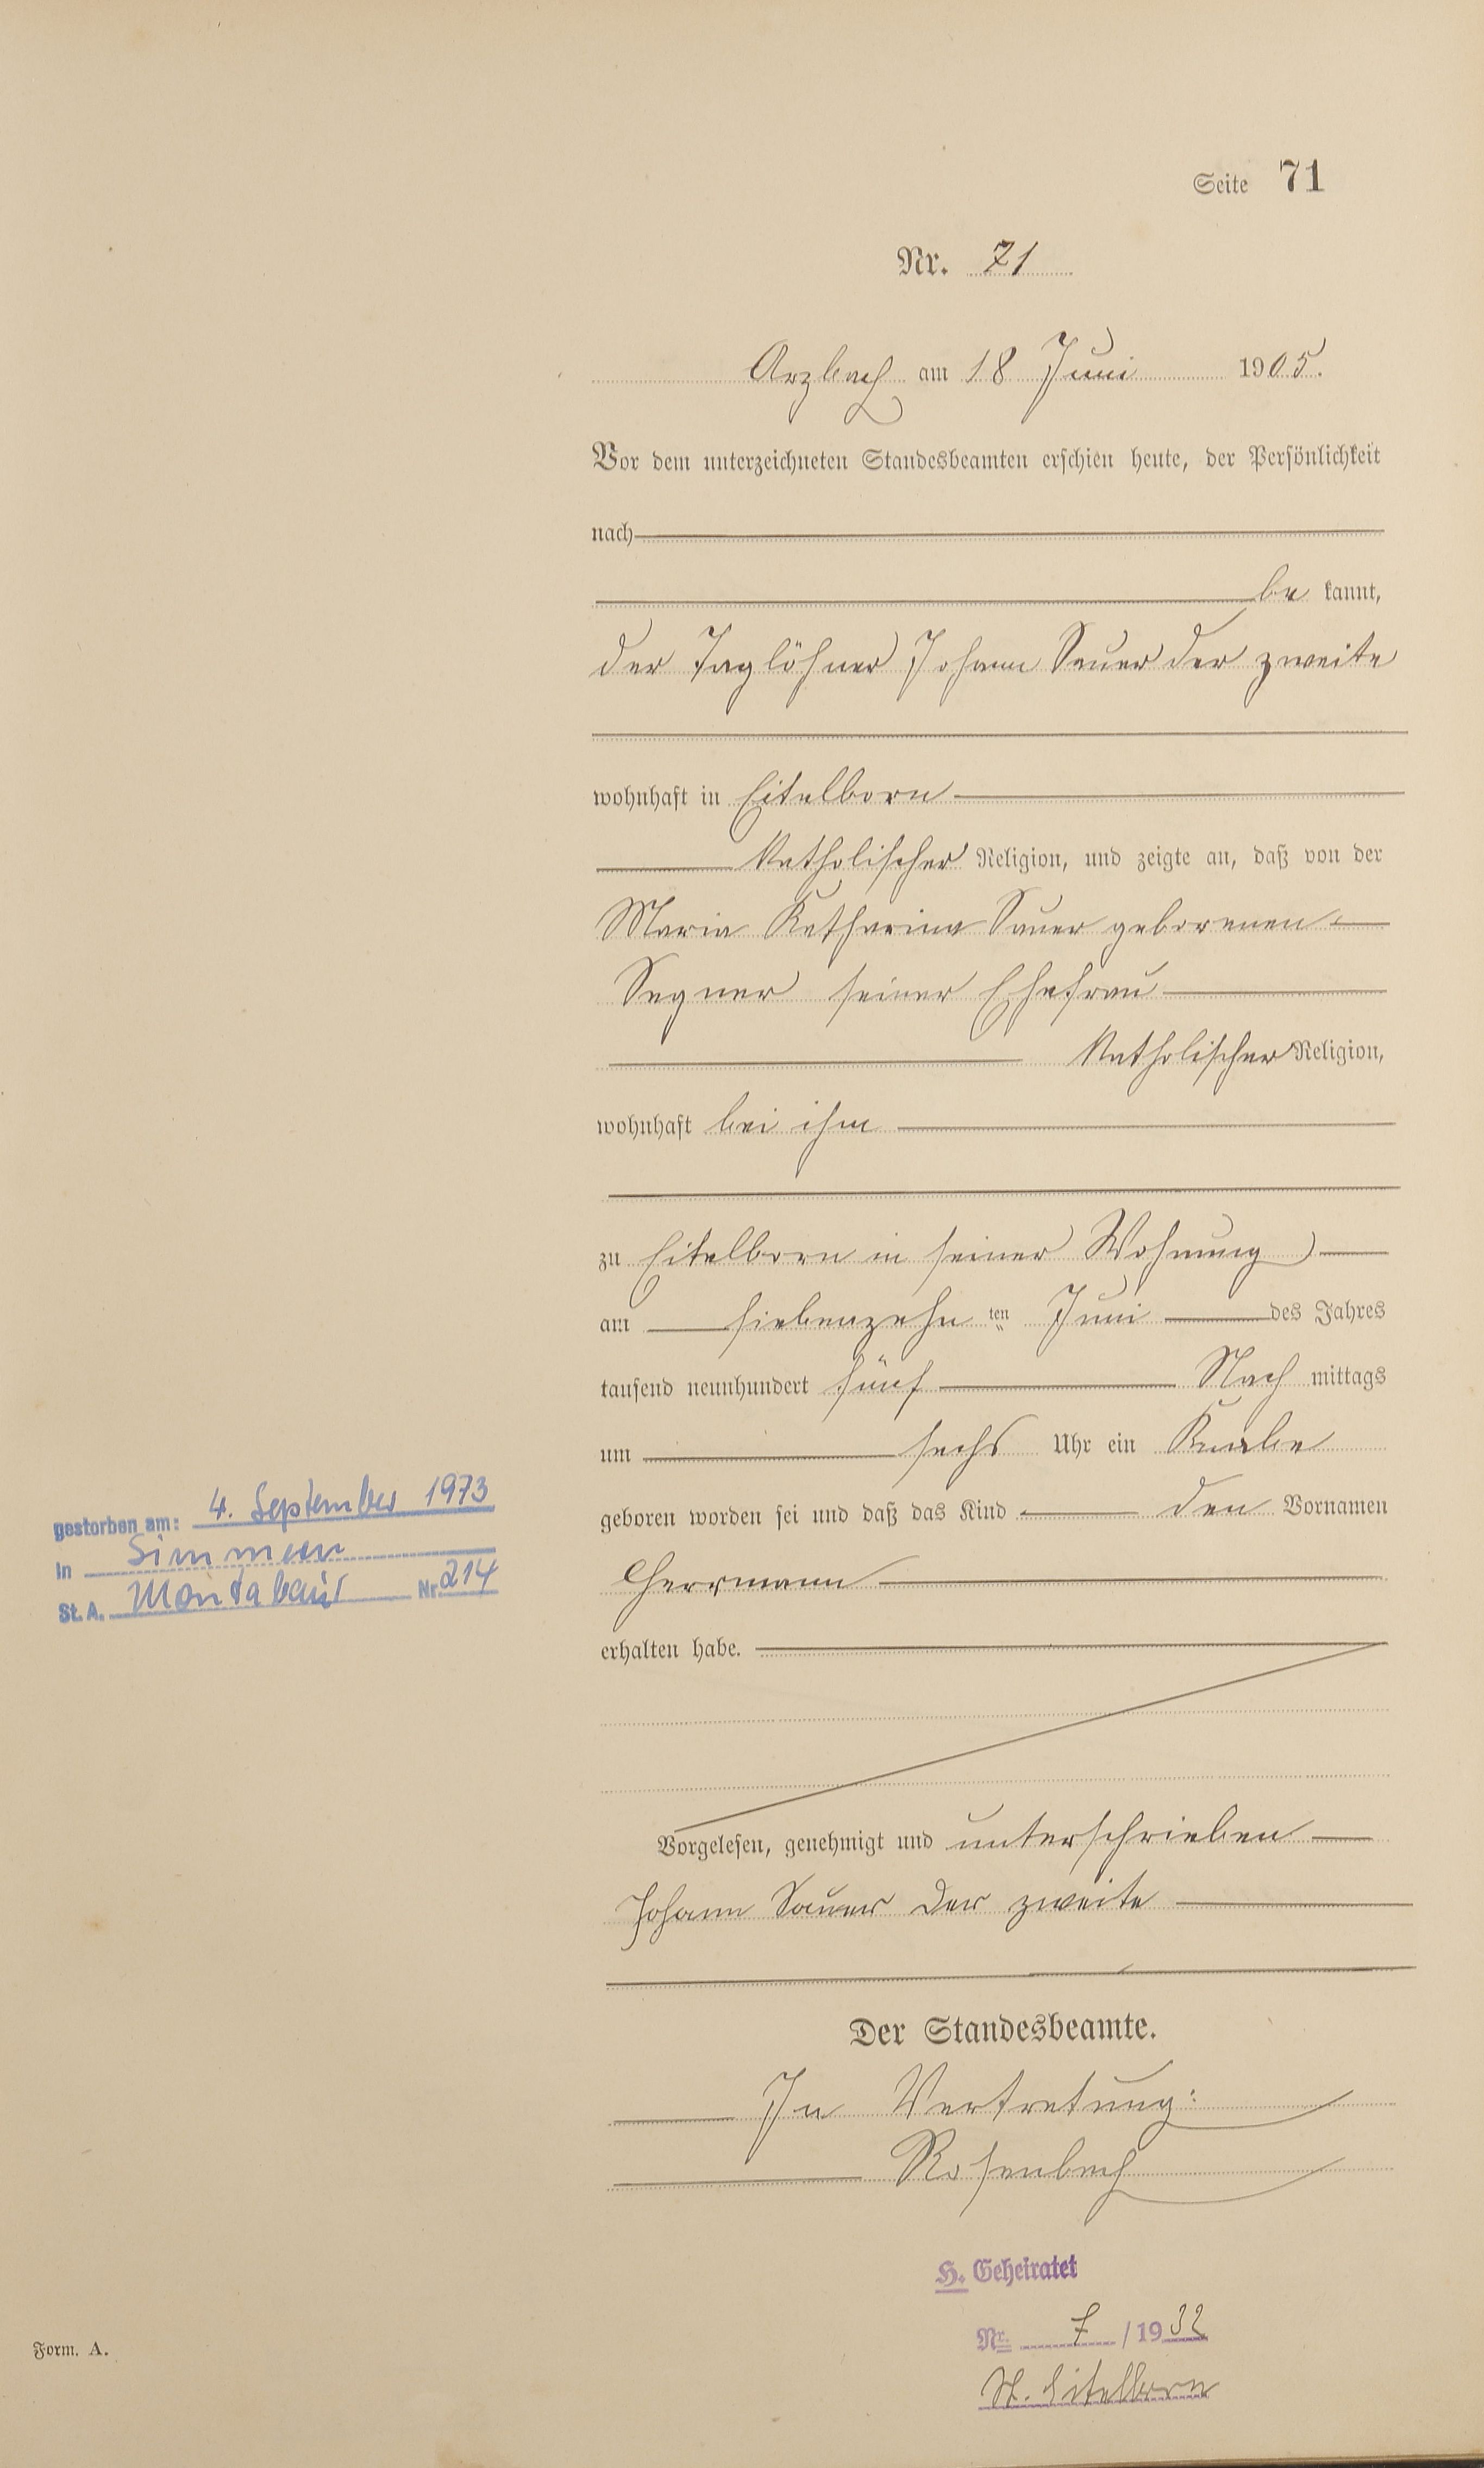 Seite 71
Nr. 71
Arzbach am 18 Juni 1905.
Vor dem unterzeichneten Standesbeamten erschien heute, der Persönlichkeit
nach
be kannt,
der Taglöhner Johann Sauer der zweite
wohnhaft in Eitelborn
katholischer Religion, und zeigte an, daß von der
Maria Katharina Sauer geborenen
Segner seiner Ehefrau
katholischer Religion,
wohnhaft bei ihm
zu Eitelborn in seiner Wohnung
am siebenzehn ten Juni des Jahres
tausend neunhundert fünf Nach mittags
um sechs Uhr ein Knabe
geboren worden sei und daß das Kind den Vornamen
Herrmann
erhalten habe.
Vorgelesen, genehmigt und unterschrieben
Johann Sauer der zweite
Der Standesbeamte.
In Vertretung:
Rosenbach
gestorben am: 4. September 1973
in Simmern
St. A. Montabaur Nr. 214
H. Geheiratet
Nr. 7 / 1932
St. Eitelborn
Form. A.